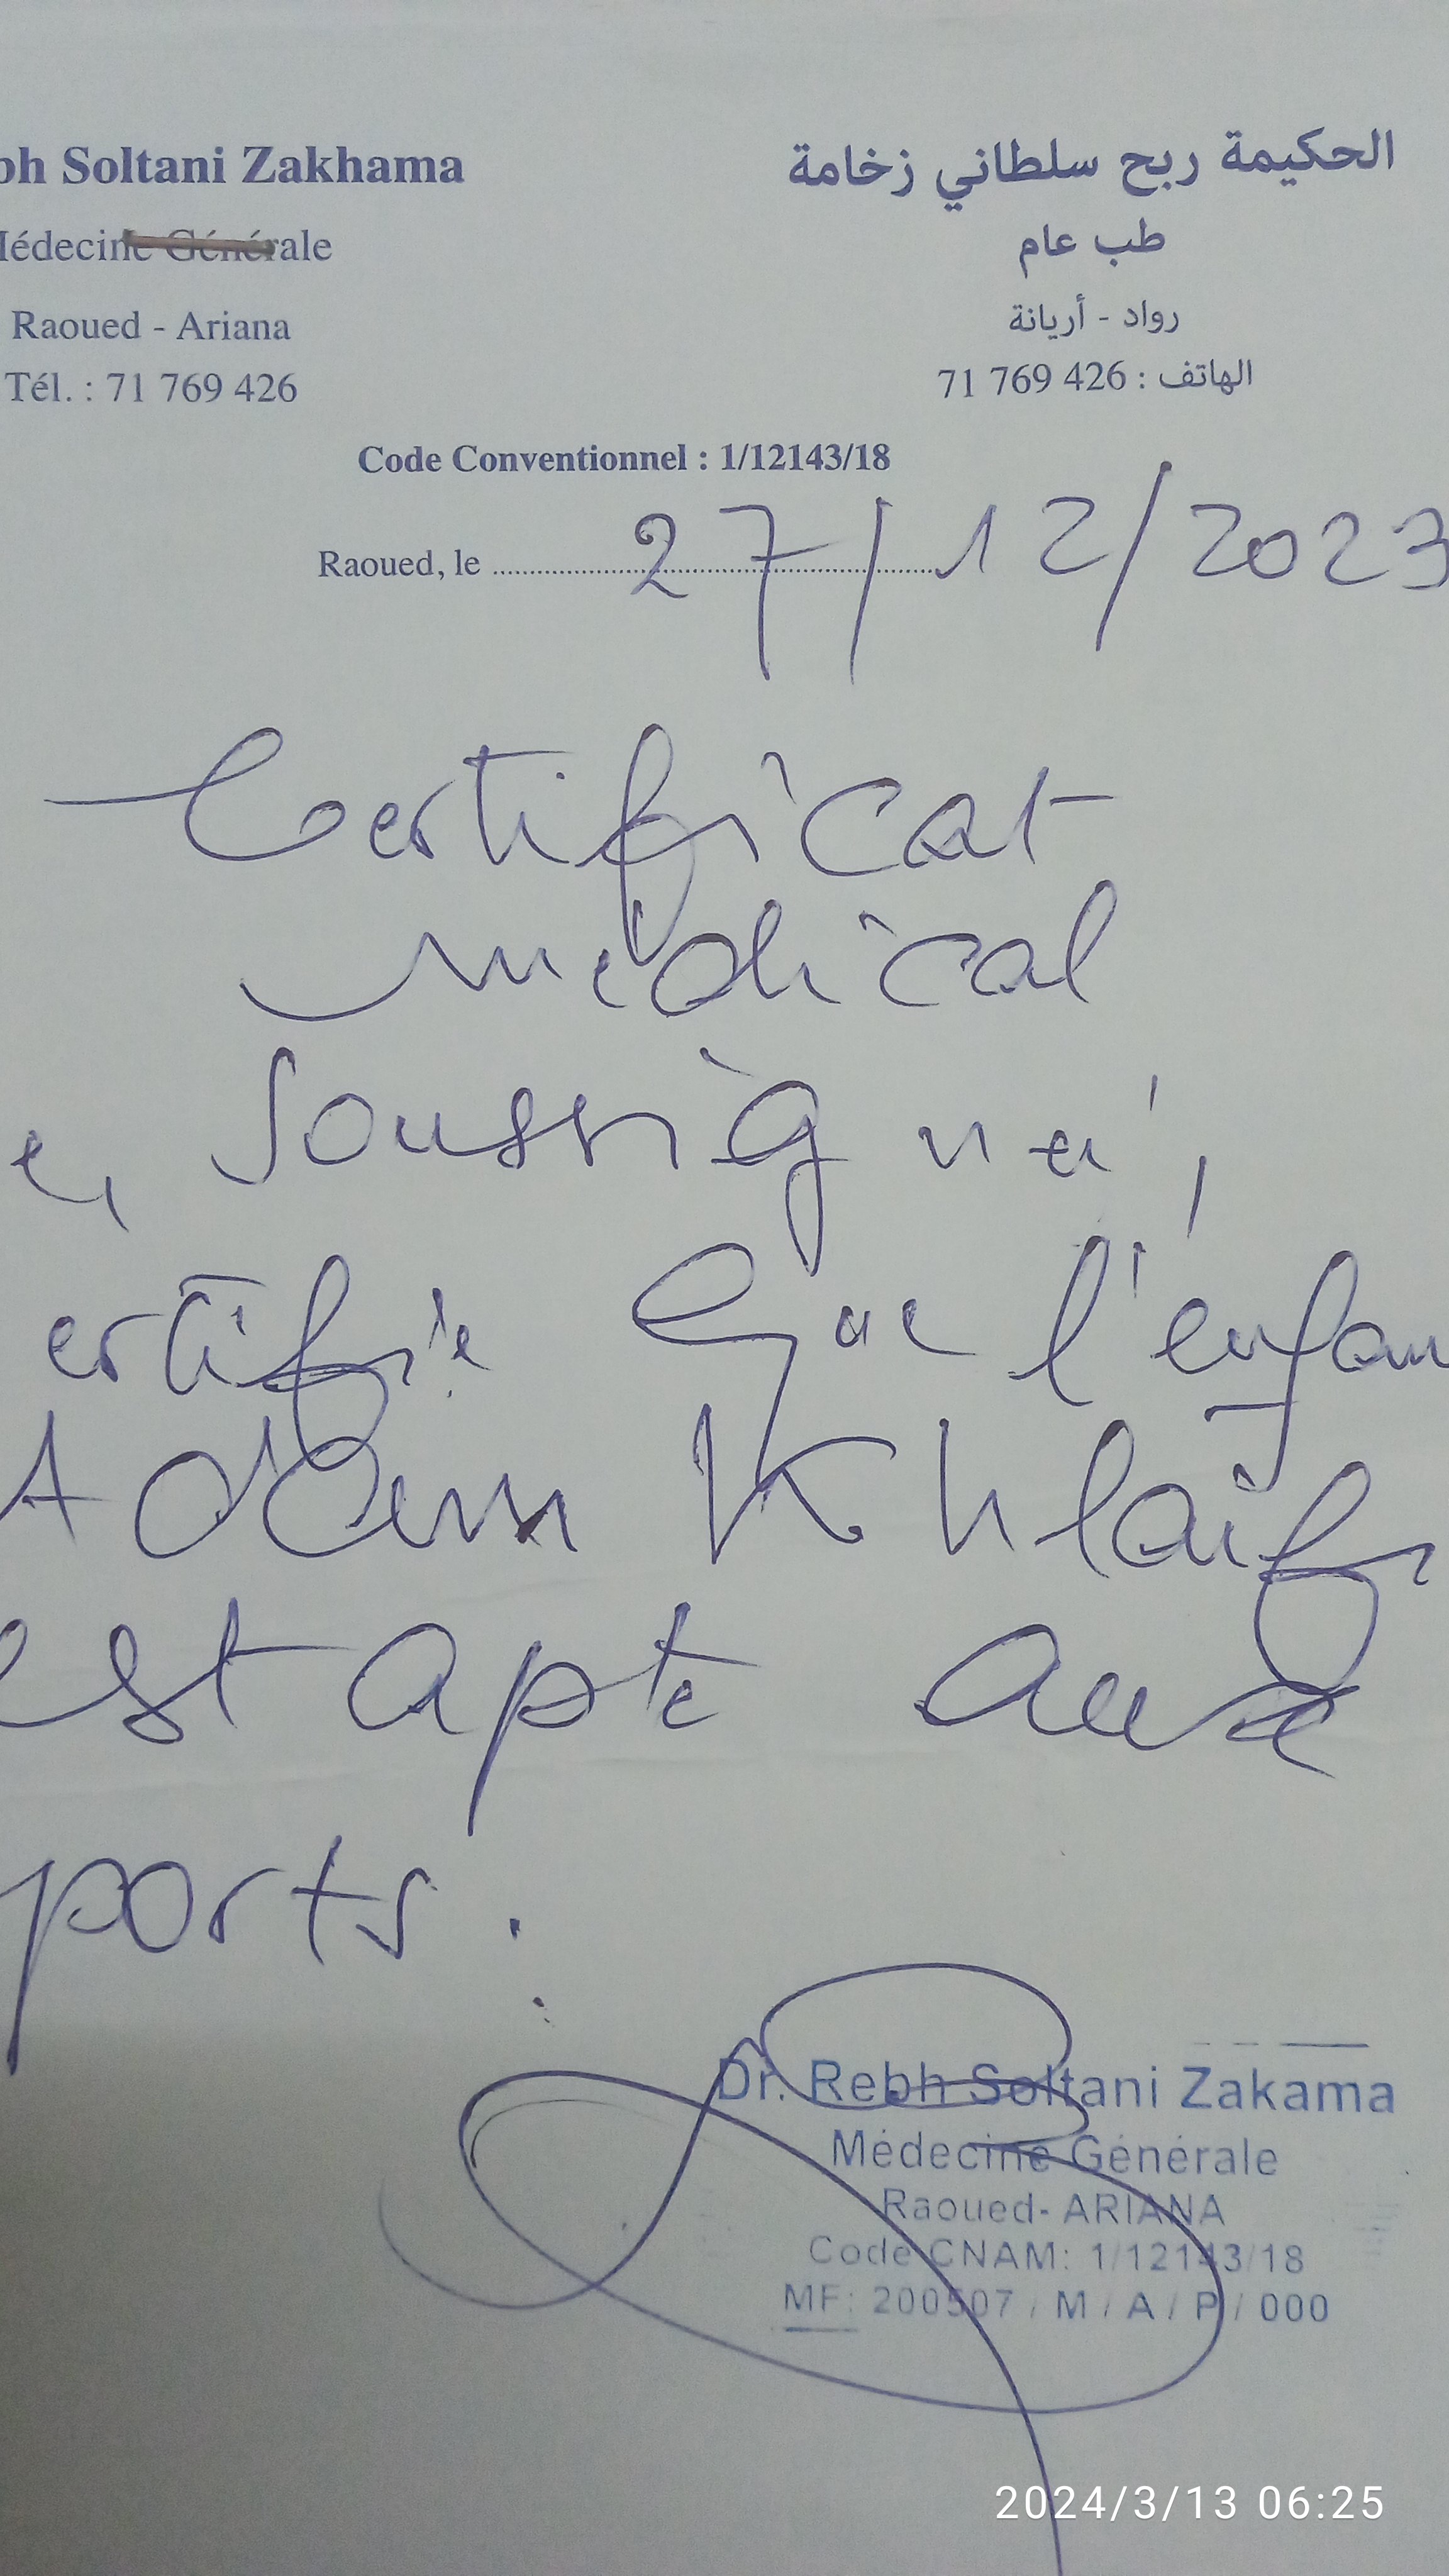 bh Soltani Zakhama
الحكيمة ربح سلطاني زخامة
Médecine Générale
طب عام
Raoued - Ariana
رواد - أريانة
Tél. : 71 769 426
الهاتف : 426 769 71
Code Conventionnel : 1/12143/18
Raoued, le 27/12/2023
Certificat
médical
e, soussigné,
ertifie que l'enfan
Adem Khlaif
est apte aux
ports.
Dr. Rebh Soltani Zakama
Médecine Générale
Raoued- ARIANA
Code CNAM: 1/12143/18
MF: 200507 / M / A / P / 000
2024/3/13 06:25